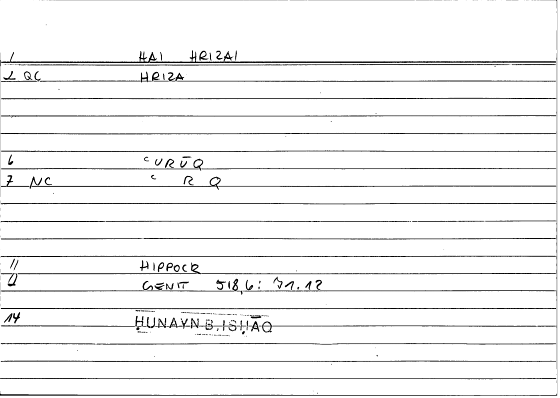 1 HAI HRIZAI
2 QC HRIZA
6 ʿURŪQ
7 NC ʿ R Q
11 HIPPOCR
GENIT 518,6: 31.12
14 ḤUNAYN B. ISḤĀQ